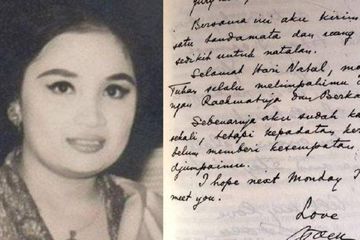 Bersama ini aku kirim
satu tandamata dan uang
sedikit untuk natalan.
Selamat Hari Natal,
Tuhan selalu melimpahimu
ngan Rachmatnja dan Berka
Sebenarnja aku sudah ka
sekali, tetapi kepadatan ke
belum memberi kesempatan
djumpaimu.
I hope next Monday
meet you.
Love